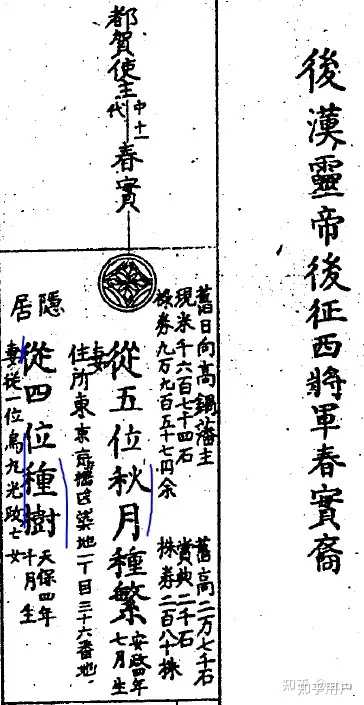 後漢靈帝後征西將軍春實裔
都賀使主
中十一代
春實
舊日向高鍋藩主
舊高二万七千石
現米千六百七十四石
賞典二千石
祿券九万九百五十七円余
株券二百八十株
從五位秋月種繁
安政四年
七月生
妻
住所東京京橋区築地一丁目三十六番地
隠居
從四位種樹
天保四年
十月生
妻從一位烏丸光政七女
知乎 @知乎用户